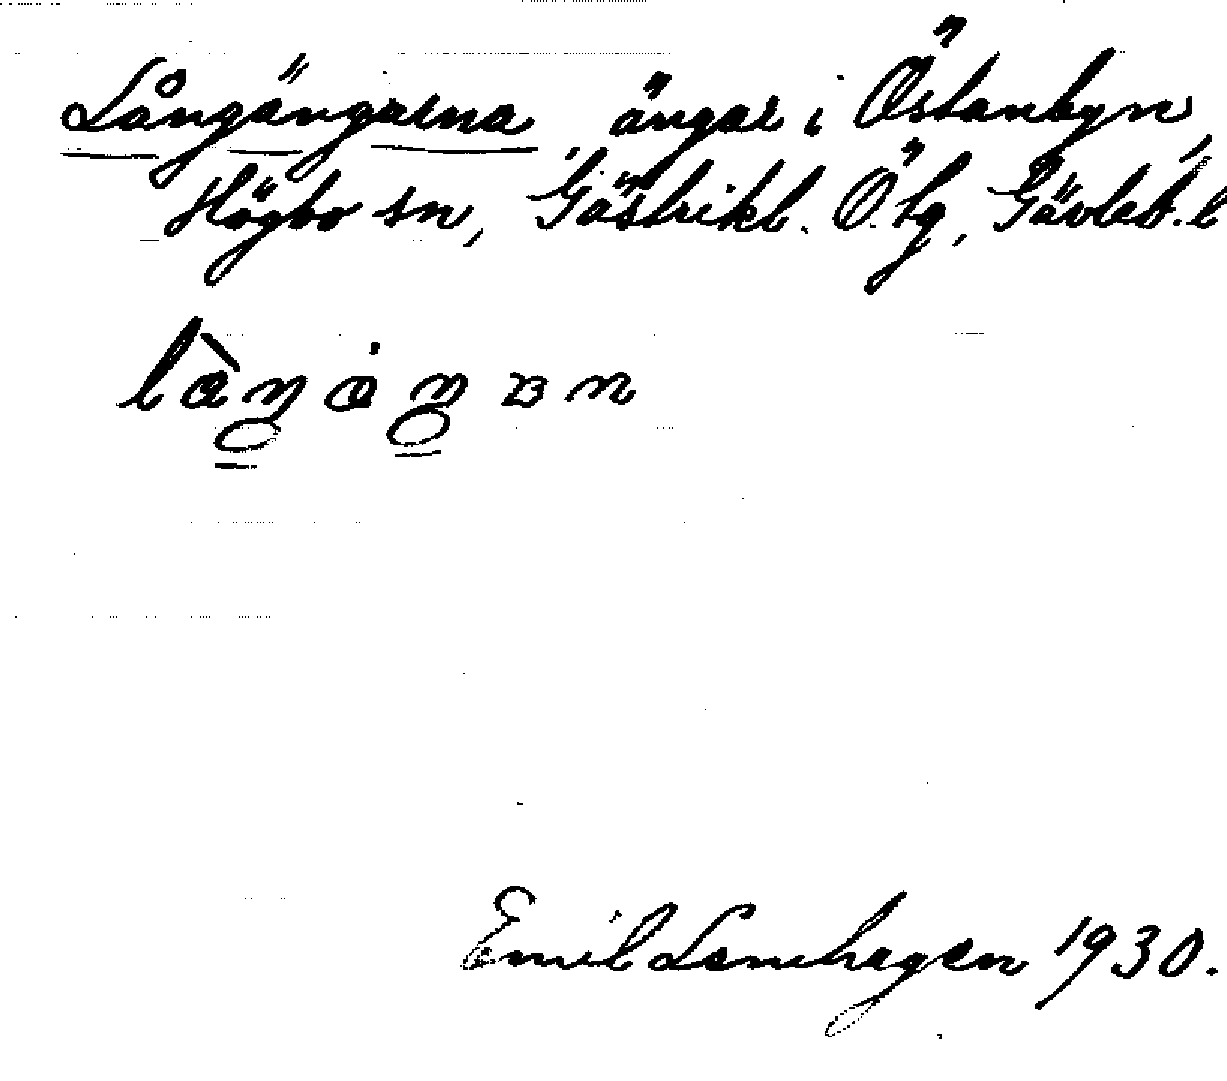 Långängarna, ängar i Östanbyn,
Högbo sn, Gästrikl. Ö. tg, Gävleb. l
Emil Lenhagen 1930.